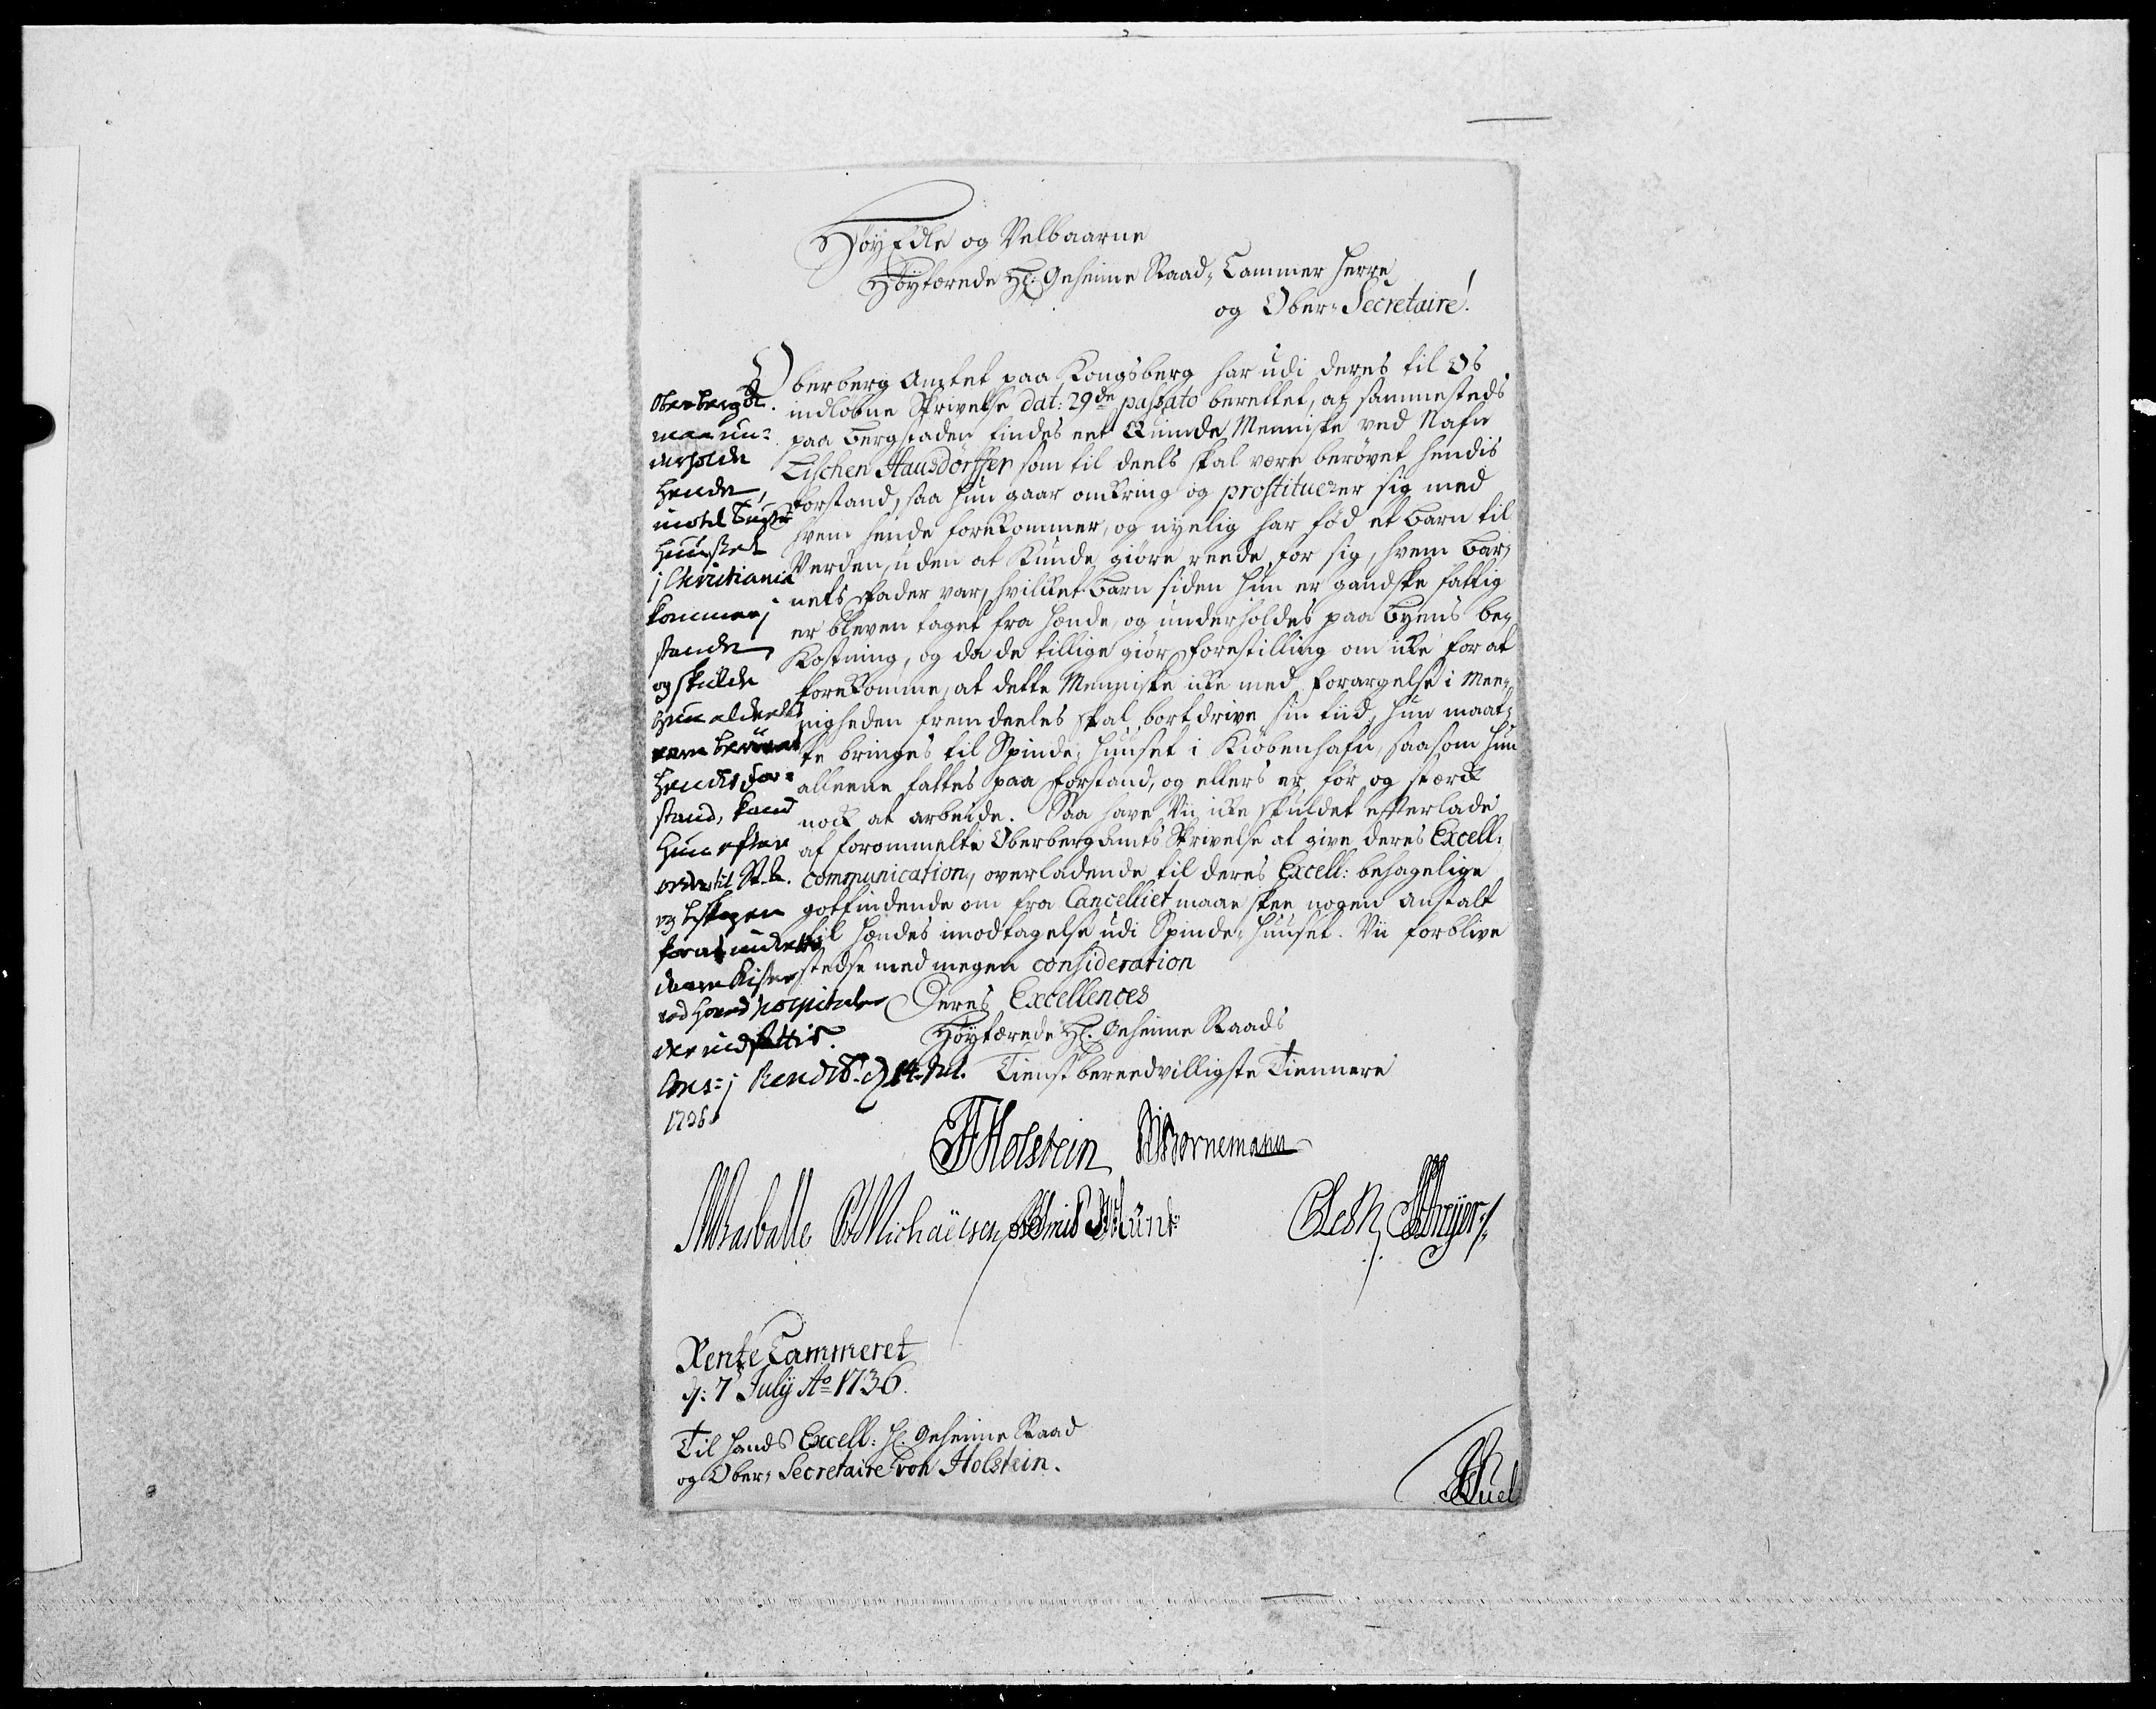 HøyEdle og Velbaarne
Høytærede Hr: Geheime Raad, Cammer Herre
og Ober-Secretaire!
Oberberg Amtet paa Kongsberg har udi deres til Os
indlobne Skrivelse dat: 29de passato berettet, at sammesteds
paa Bergstaden findes eet Quinde Menniske ved Nafn
Lischen Hausdörffer som til deels skal være berøvet hendis
forstand, saa hun gaar omkring og prostituerer sig med
hvem hende forekommer, og nyelig har fød et Barn til
Verden, uden at kunde giøre reede for sig, hvem Bar-
nets Fader var, hvilket Barn siden hun er gandske fattig
er bleven taget fra hende, og underholdes paa Byens be-
kostning, og da de tillige giør forestilling om ike for at
forekomme, at dette Menniske ike med forargelse i Mee-
nigheden fremdeeles skal bortdrive sin tiid, hun maat-
te bringes til Spinde-Huuset i Kiøbenhafn, saasom hun
alleene fattes paa forstand, og ellers er før og stærk
nock at arbeide. Saa have Vii ike skuldet efterlade
af forommelte Oberberg Amts Skrivelse at give deres Excell:
communication, overladende til deres Excell: behagelige
gotfindende om fra Cancelliet maae skee nogen anstalt
til hendes imodtagelse udi Spinde-Huuset. Vii forblive
stedse med megen consideration
Deres Excellences
Høytærede Hr. Geheime Raads
Tienstbereedvilligste Tiennere
Oberberg A.
maa un-
derholde
hende,
indtil Tugt
Huuset
i Christiania
kommer i
stande,
og skulde
hun aldeeles
være berøvet
hendis for-
stand, kand
hun efter
ordre til St.
og Bispen
for at indettes
daare kister
ved hospitaler
der indsettis.
Cons: i 14 Jul.
1736
Holstein Bornemann
Michaelsen Munk
Dreyer
Rente Cammeret
d: 7 July Ao 1736.
Til Hands Excell: Hr. Geheime Raad
og Ober-Secretaire von Holstein.
Juel